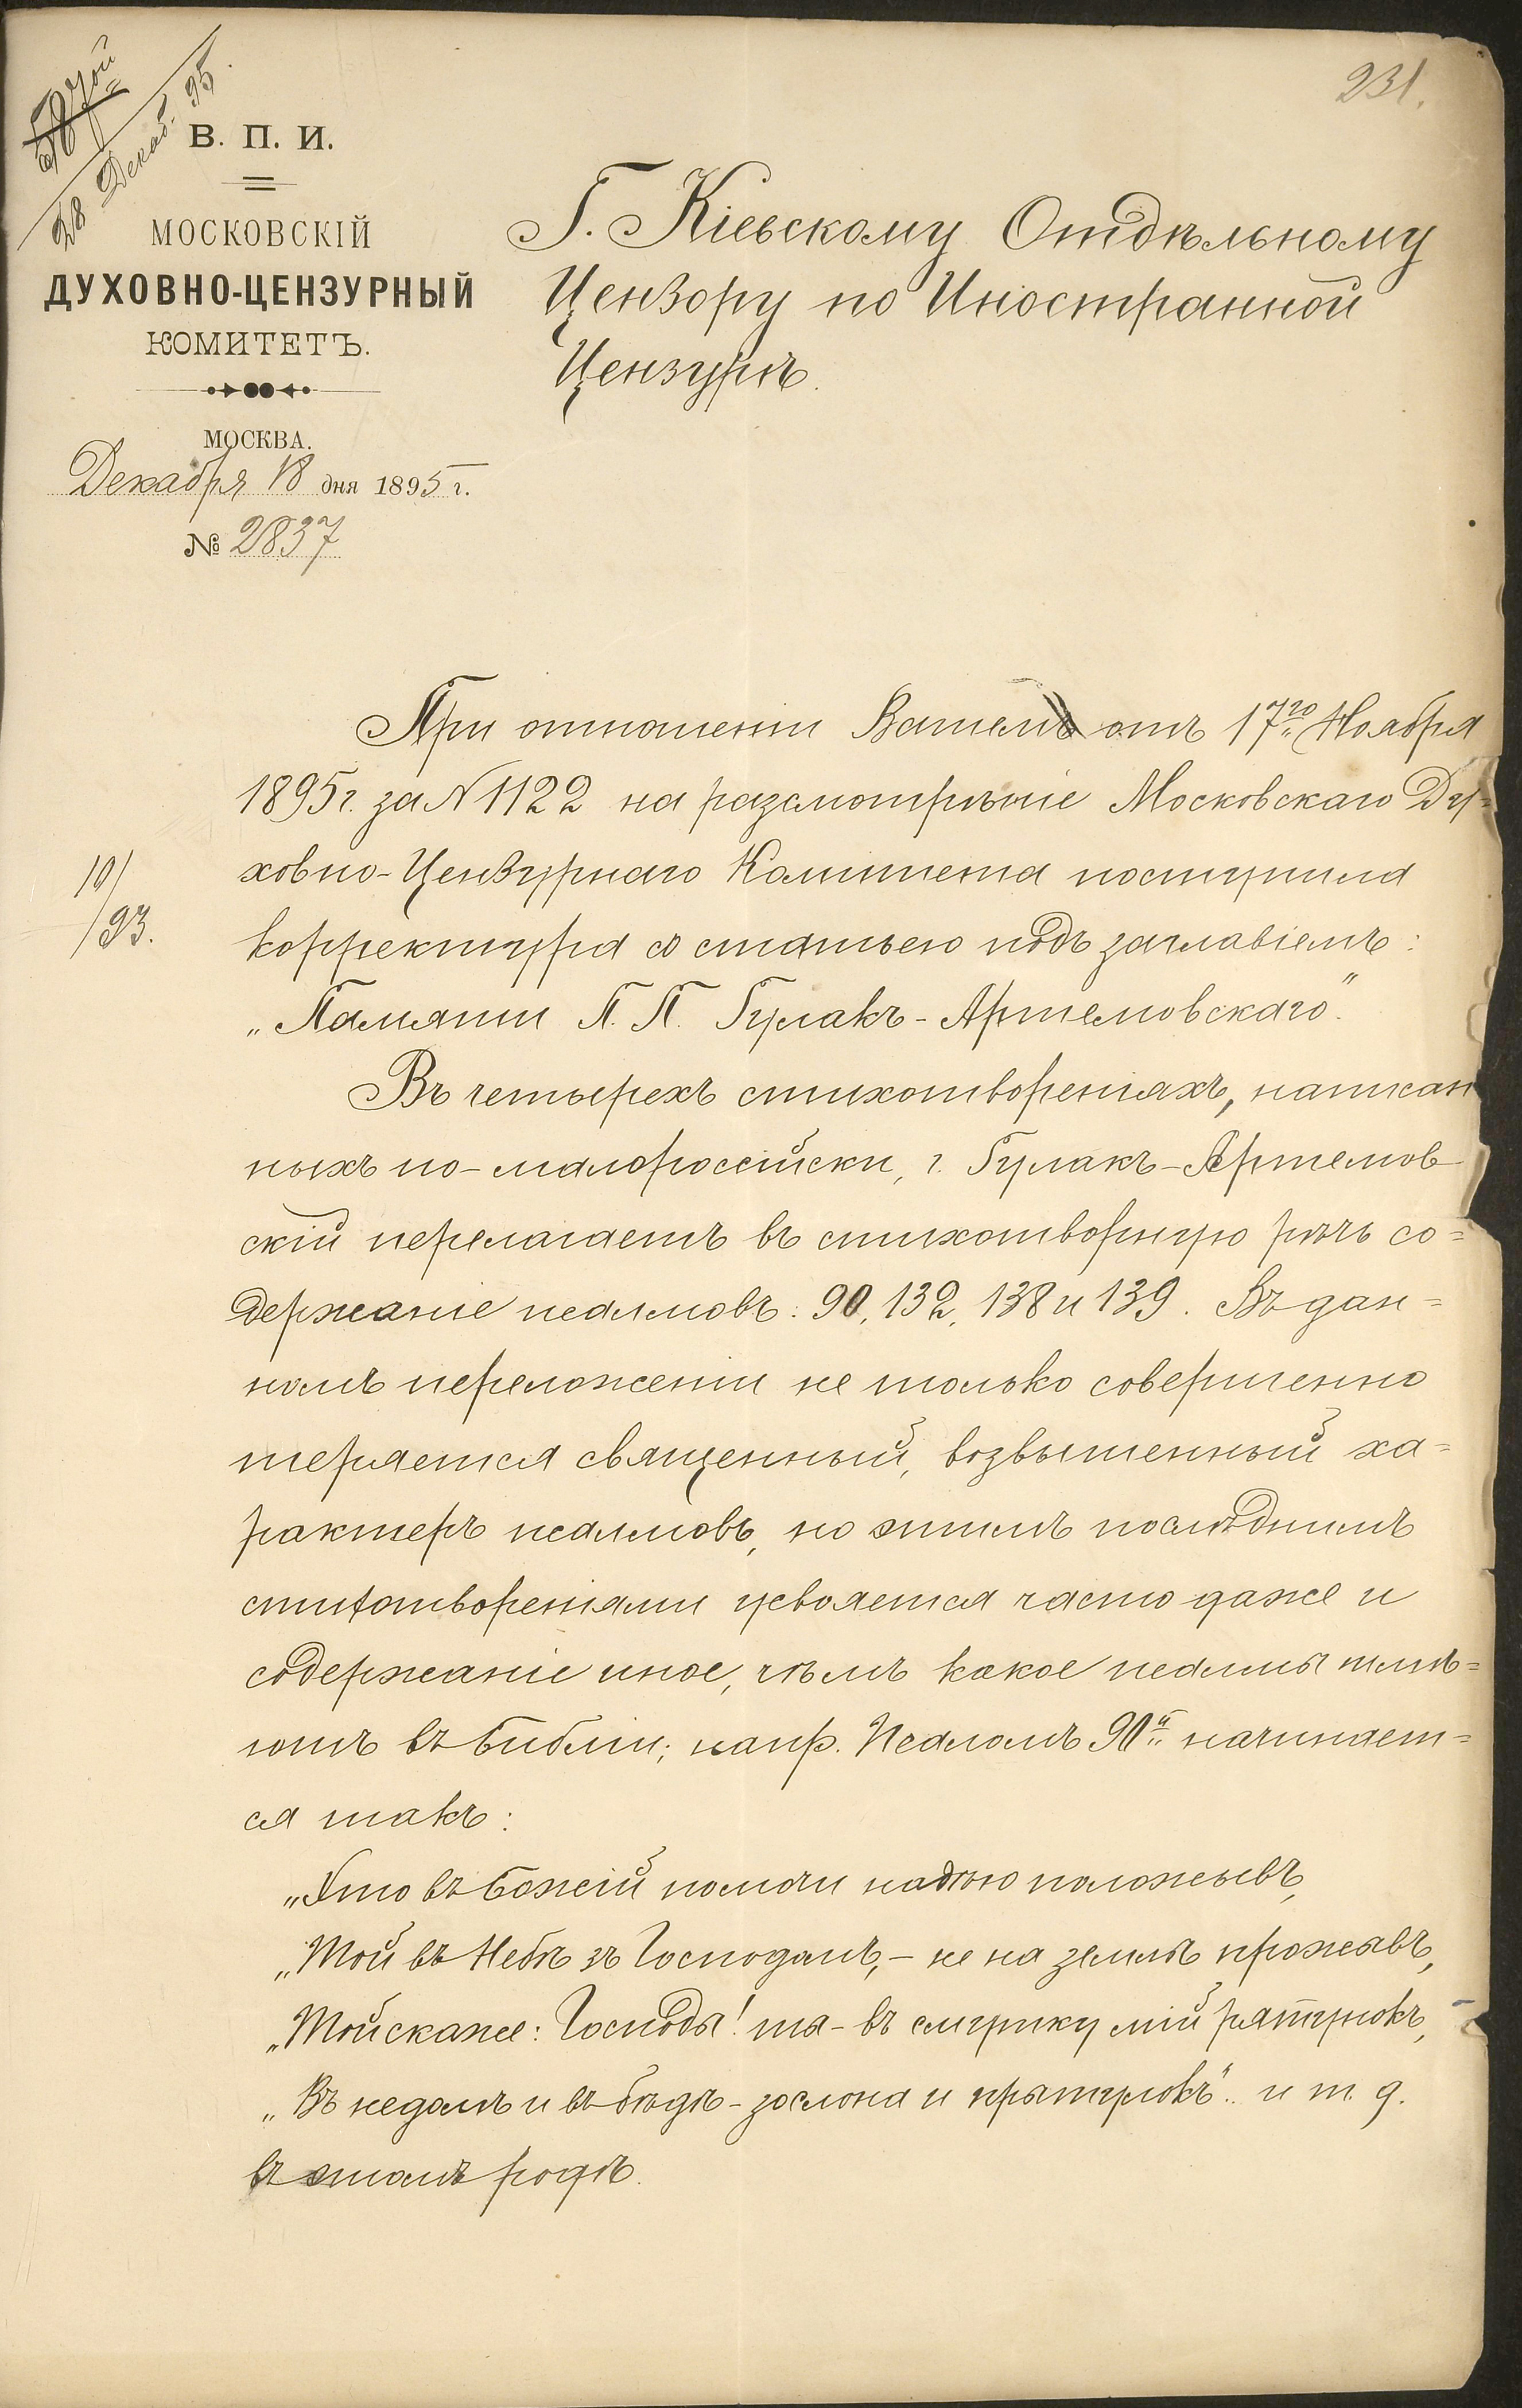 231.
28 Декаб. 95.
В. П. И.
МОСКОВСКІЙ
ДУХОВНО-ЦЕНЗУРНЫЙ
КОМИТЕТЪ.
МОСКВА.
Декабря 18 дня 1895 г.
№ 2837
Г. Кіевскому Отдѣльному
Цензору по Иностранной
Цензурѣ.
При отношеніи Вашемъ отъ 17го Ноября
1895 г. за N 1122 на разсмотрѣніе Московскаго Ду=
ховно-Цензурнаго Комитета поступила
10/
/93.
корректура со статьею подъ заглавіемъ:
„Памяти П. П. Гулакъ-Артемовскаго".
Въ четырехъ стихотвореніяхъ, написан
ныхъ по-малороссійски, г. Гулакъ-Артемов
скій перелагаетъ въ стихотворную рѣчь со=
держаніе псалмовъ: 90, 132, 138 и 139. Въ дан=
номъ переложеніи не только совершенно
теряется священный, возвышенный ха=
рактеръ псалмовъ, но этимъ послѣднимъ
стихотвореніями усвояется часто даже и
содержаніе иное, чѣмъ какое псалмы имѣ=
ютъ въ библіи; напр. Псаломъ 90й начинает=
ся такъ:
„Хто въ Божій помочи надѣю положывъ,
„Той въ Небѣ зъ Господомъ, - не на землѣ прожывъ,
„Той скаже: Господы! ты - въ смутку мій рятунокъ,
„Въ недоли и въ бѣдѣ - заслона и прытулокъ".. и т. д.
въ этомъ родѣ.